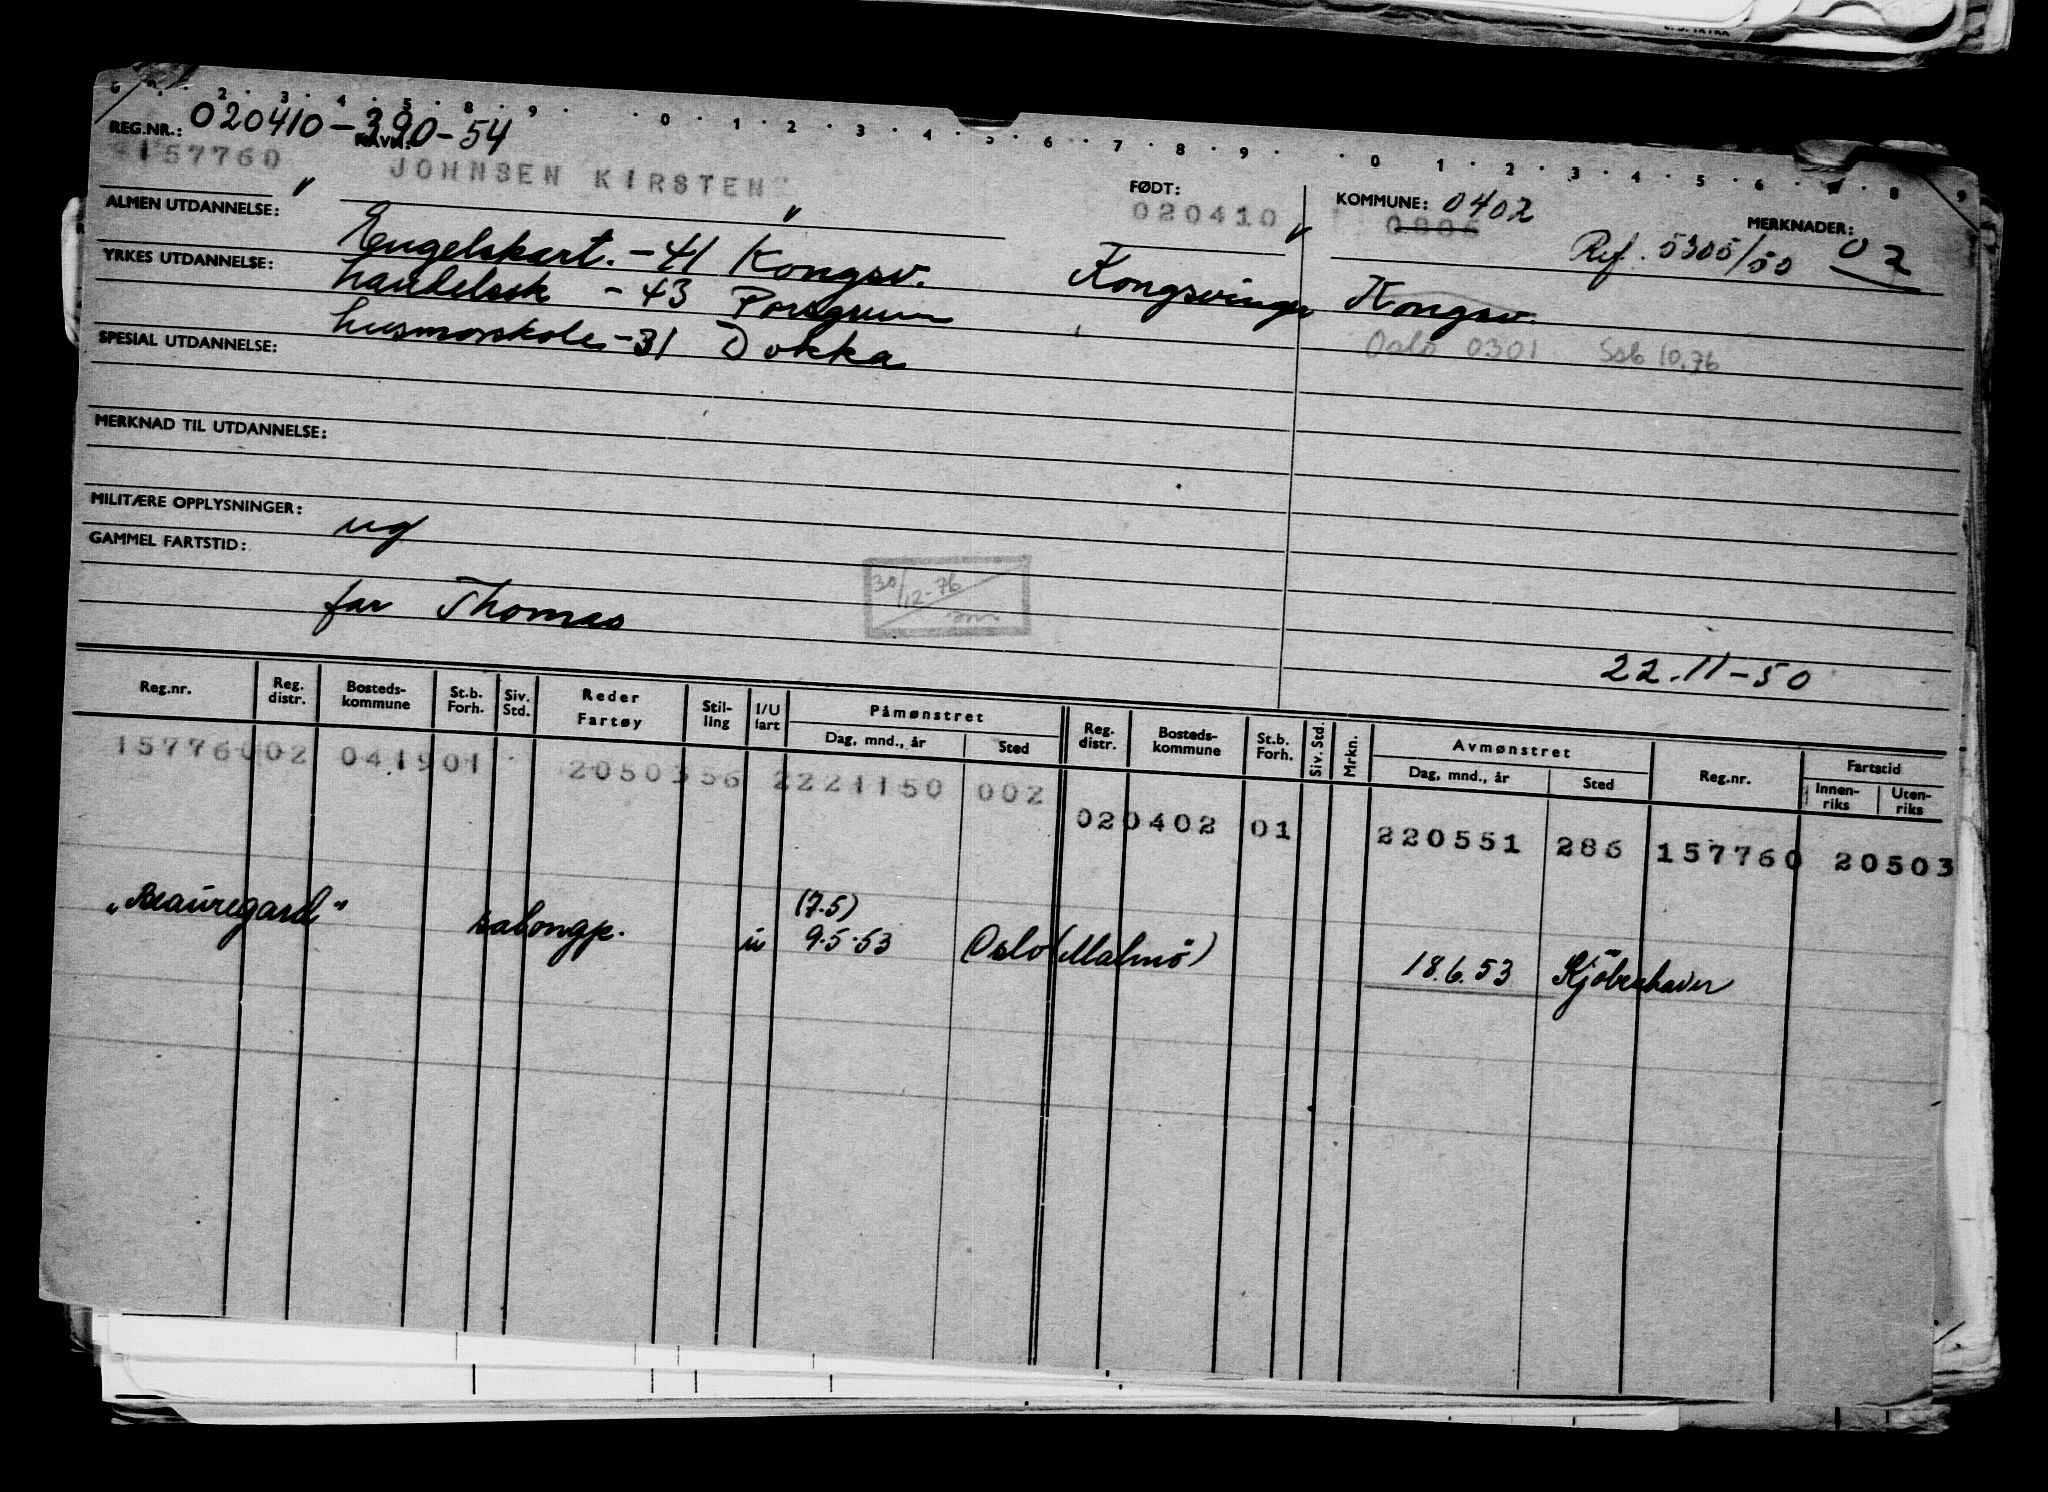 2 . 3 . 4 . 5 . 8 . 9 . . 0 . 1 . 2 . 3 . 4 . 5 . 6 . 7 . 8 . 9 . . 0 1 . 2 . 3 . 4 . 5 . 6 . 7 . 8 9
REG.NR.: 020410-390-54
NAVN:
157760 JOHNSEN KIRSTEN
FØDT: 020410
KOMMUNE: 0402
0806
MERKNADER: 02
Ref. 5305/50
ALMEN UTDANNELSE:
Engelskart. -41 Kongsv. Kongsvinger Kongsv.
YRKES UTDANNELSE:
handelssk -43 Porsgrunn
husmorskole -31 Dokka
Oslo 0301 Ssb 10.76
SPESIAL UTDANNELSE:
MERKNAD TIL UTDANNELSE:
MILITÆRE OPPLYSNINGER:
ug
GAMMEL FARTSTID:
30/12-76
far Thomas
22.11-50
Reg.nr. Reg. distr. Bosteds-kommune St.b. Forh. Siv. Std. Reder Fartøy Stil-ling I/U fart Påmønstret Dag, mnd., år Sted Reg. distr. Bosteds-kommune St.b. Forh. Siv. Std. Mrkn. Avmønstret Dag, mnd., år Sted Reg.nr. Fartstid Innen-riks Uten-riks
157760 02 0419 01 20503 56 2 221150 002
02 0402 01 220551 286 157760 20503
"Beauregard" salongp. u (7.5) 9.5.53 Oslo (Malmö) 18.6.53 Kjöbenhavn